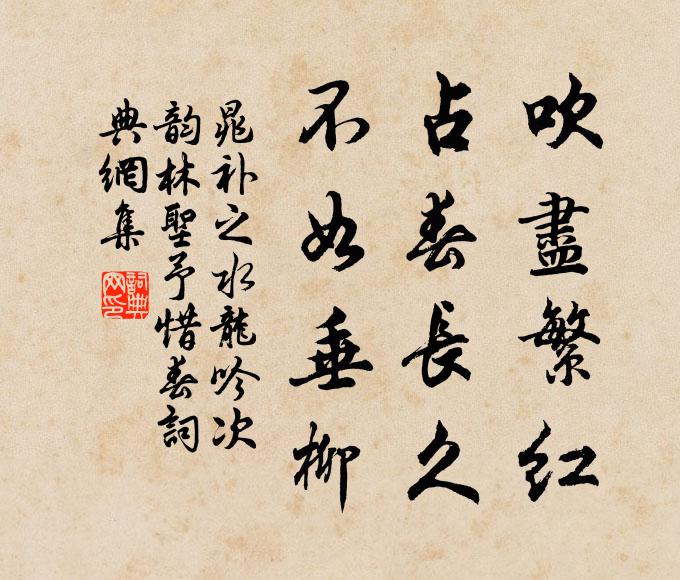 吹盡繁紅
占春長久
不如垂柳
晁補之水龍吟次
韵林聖予惜春詞
典網集
詞典網印